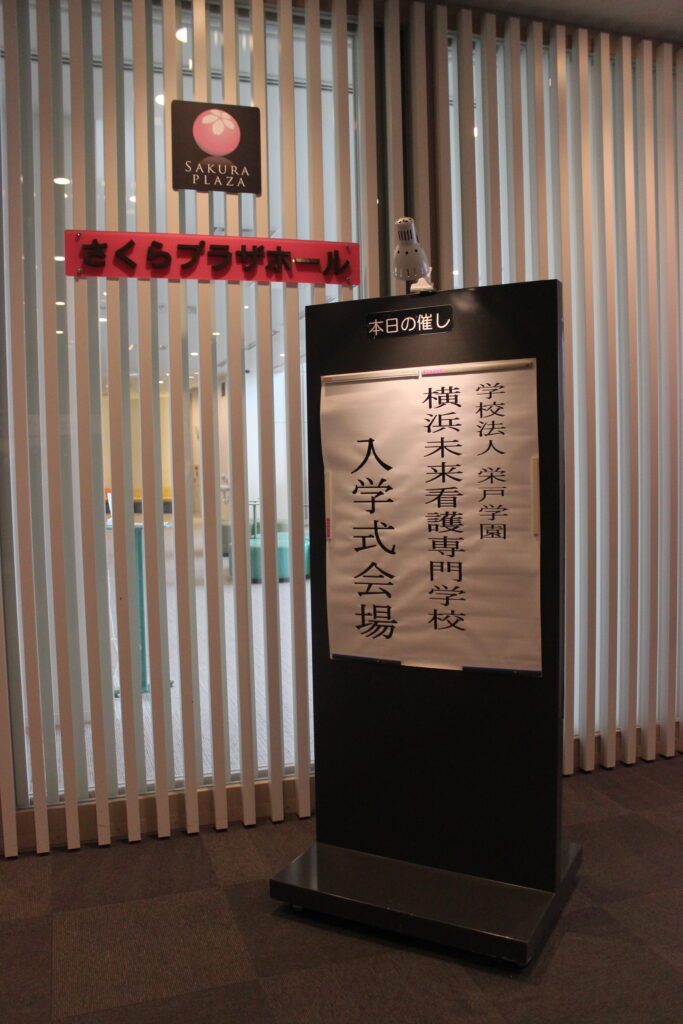 SAKURA
PLAZA
さくらプラザホール
本日の催し
学校法人 栄戸学園
横浜未来看護専門学校
入学式会場